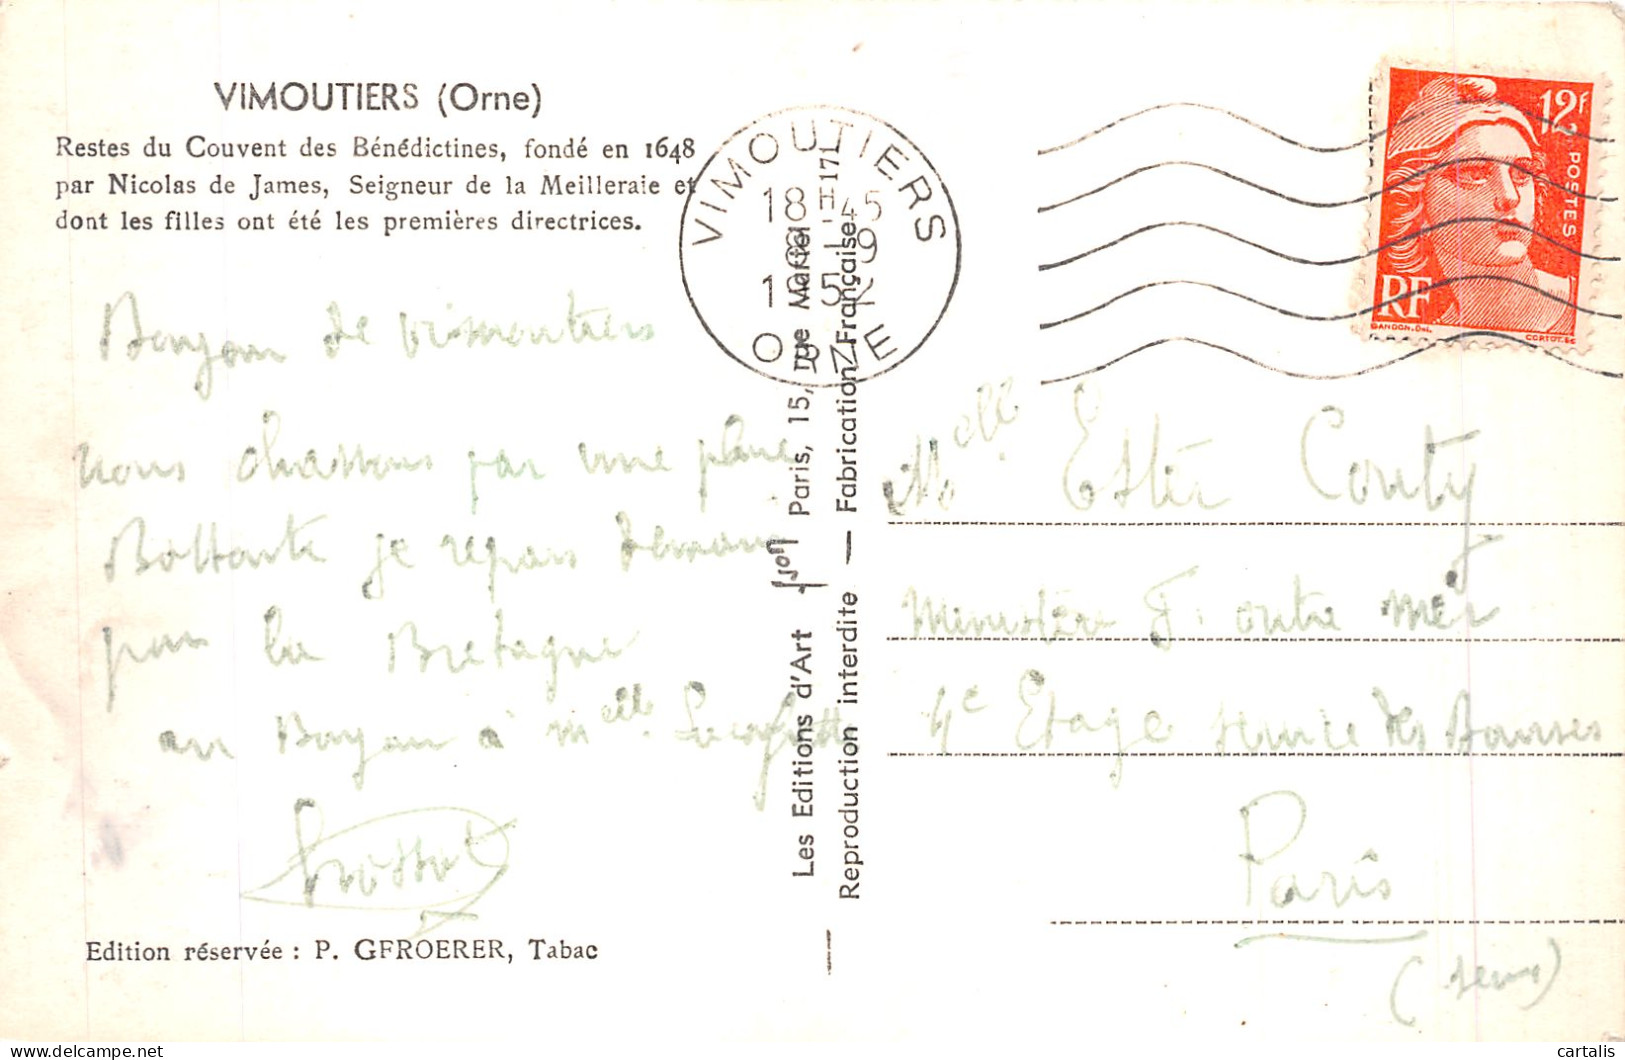 VIMOUTIERS (Orne)
Restes du Couvent des Bénédictines, fondé en 1648
par Nicolas de James, Seigneur de la Meilleraie et
dont les filles ont été les premières directrices.
Bonjour de Vimoutiers
nous chassons par une pluie
Battante je repars demain
pour la Bretagne
un Bonjour à Melle
Edition réservée : P. GFROERER, Tabac
Les Editions d'Art Paris, 15, rue Martel
Reproduction interdite — Fabrication Française
VIMOUTIERS
18 H 45
ORNE
12F
POSTES
RF
GANDON. DEL.
CORTOT. SC
Melle Ester Couty
Ministère F. outre mer
4e Etage service des Bourses
Paris
(Seine)
cartalis